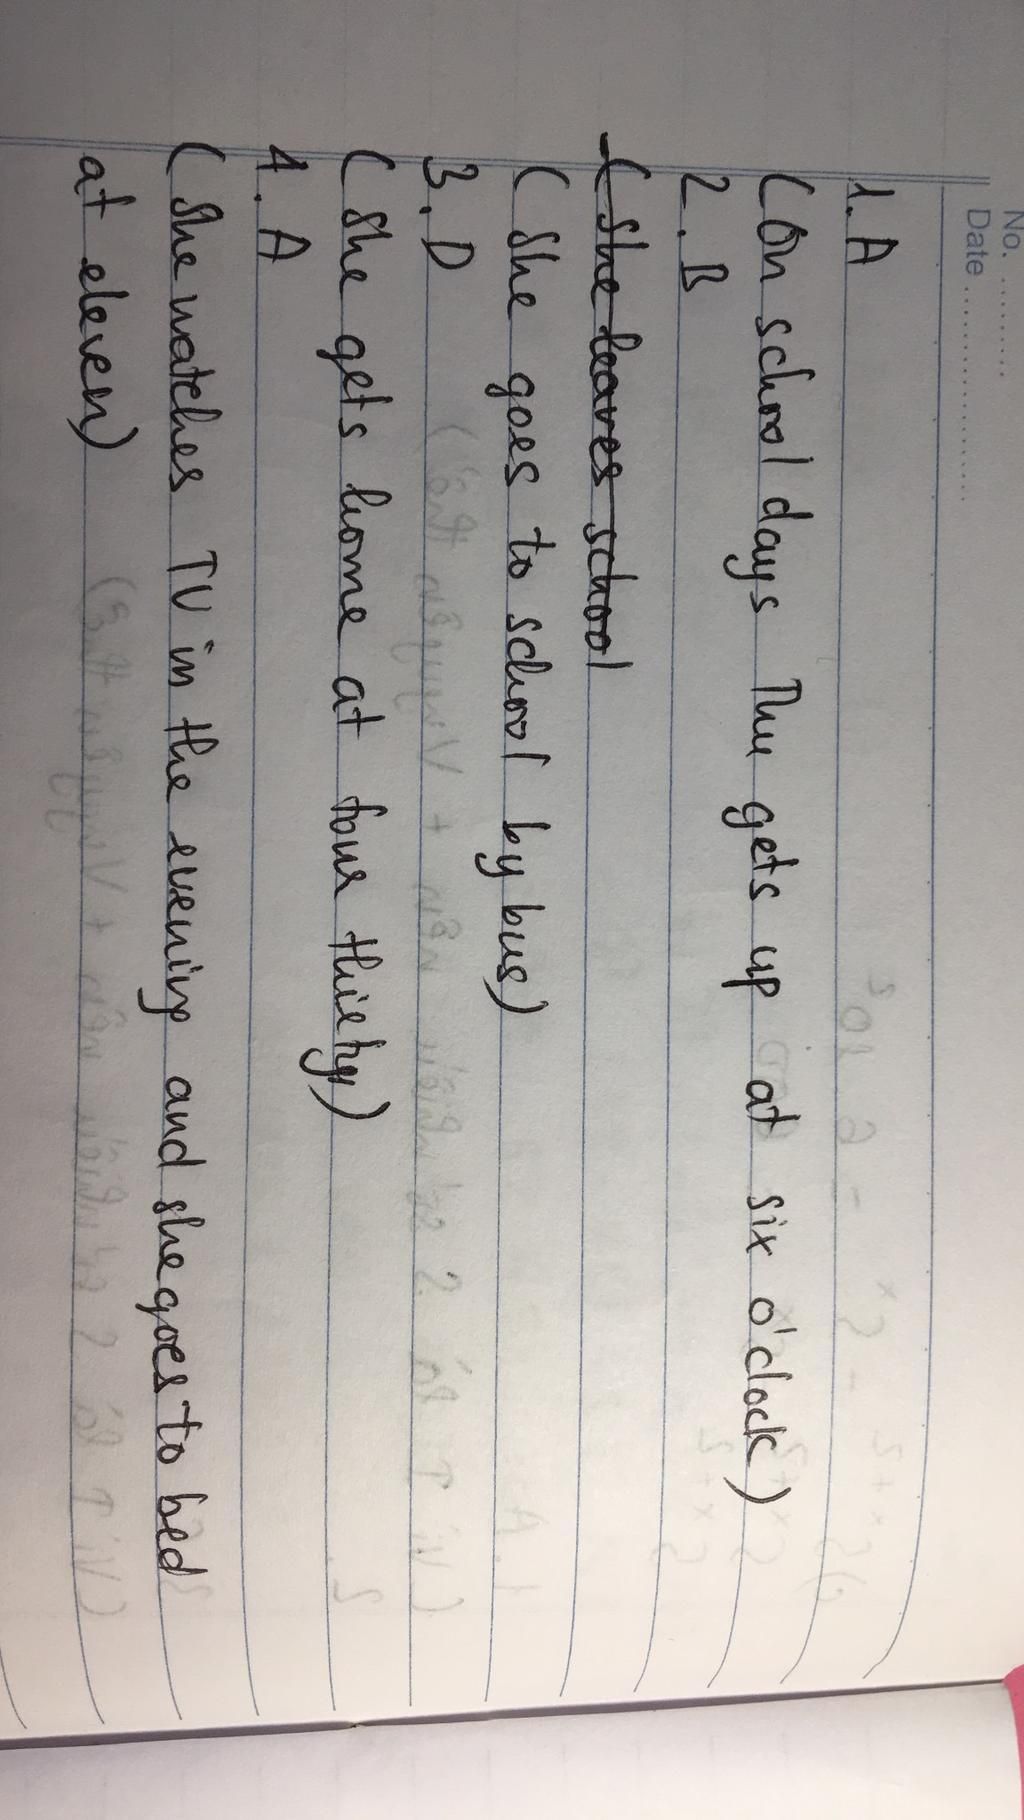 No. ..........
Date .....................
1. A
(On school days Thu gets up at six o'clock)
2. B
(She leaves school
(She goes to school by bus)
3. D
(She gets home at four thirty)
4. A
(She watches TV in the evening and she goes to bed
at eleven)